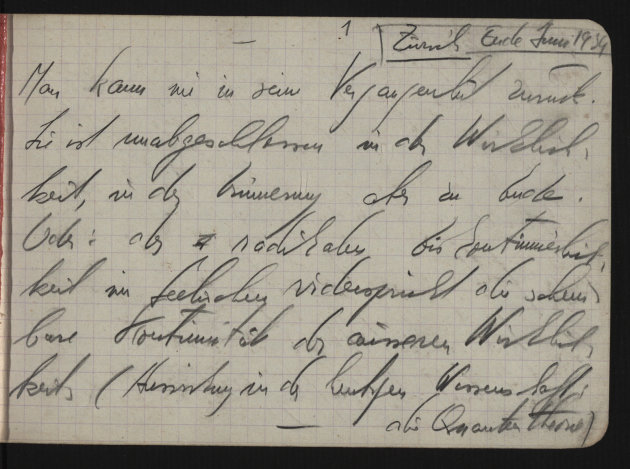 1 Zürich Ende Juni 1934
Man kann nie in sein Vergangenheit zurück.
Sie ist unabgeschlossen in der Wirklich-
keit, in der Erinnerung aber zu Ende.
Oder: der radikalen Diskontinuierlich-
keit im Seelischen widerspricht die schein-
bare Kontinuität der äusseren Wirklich-
keit (in der heutigen Wissenschaft:
die Quantentheorie)